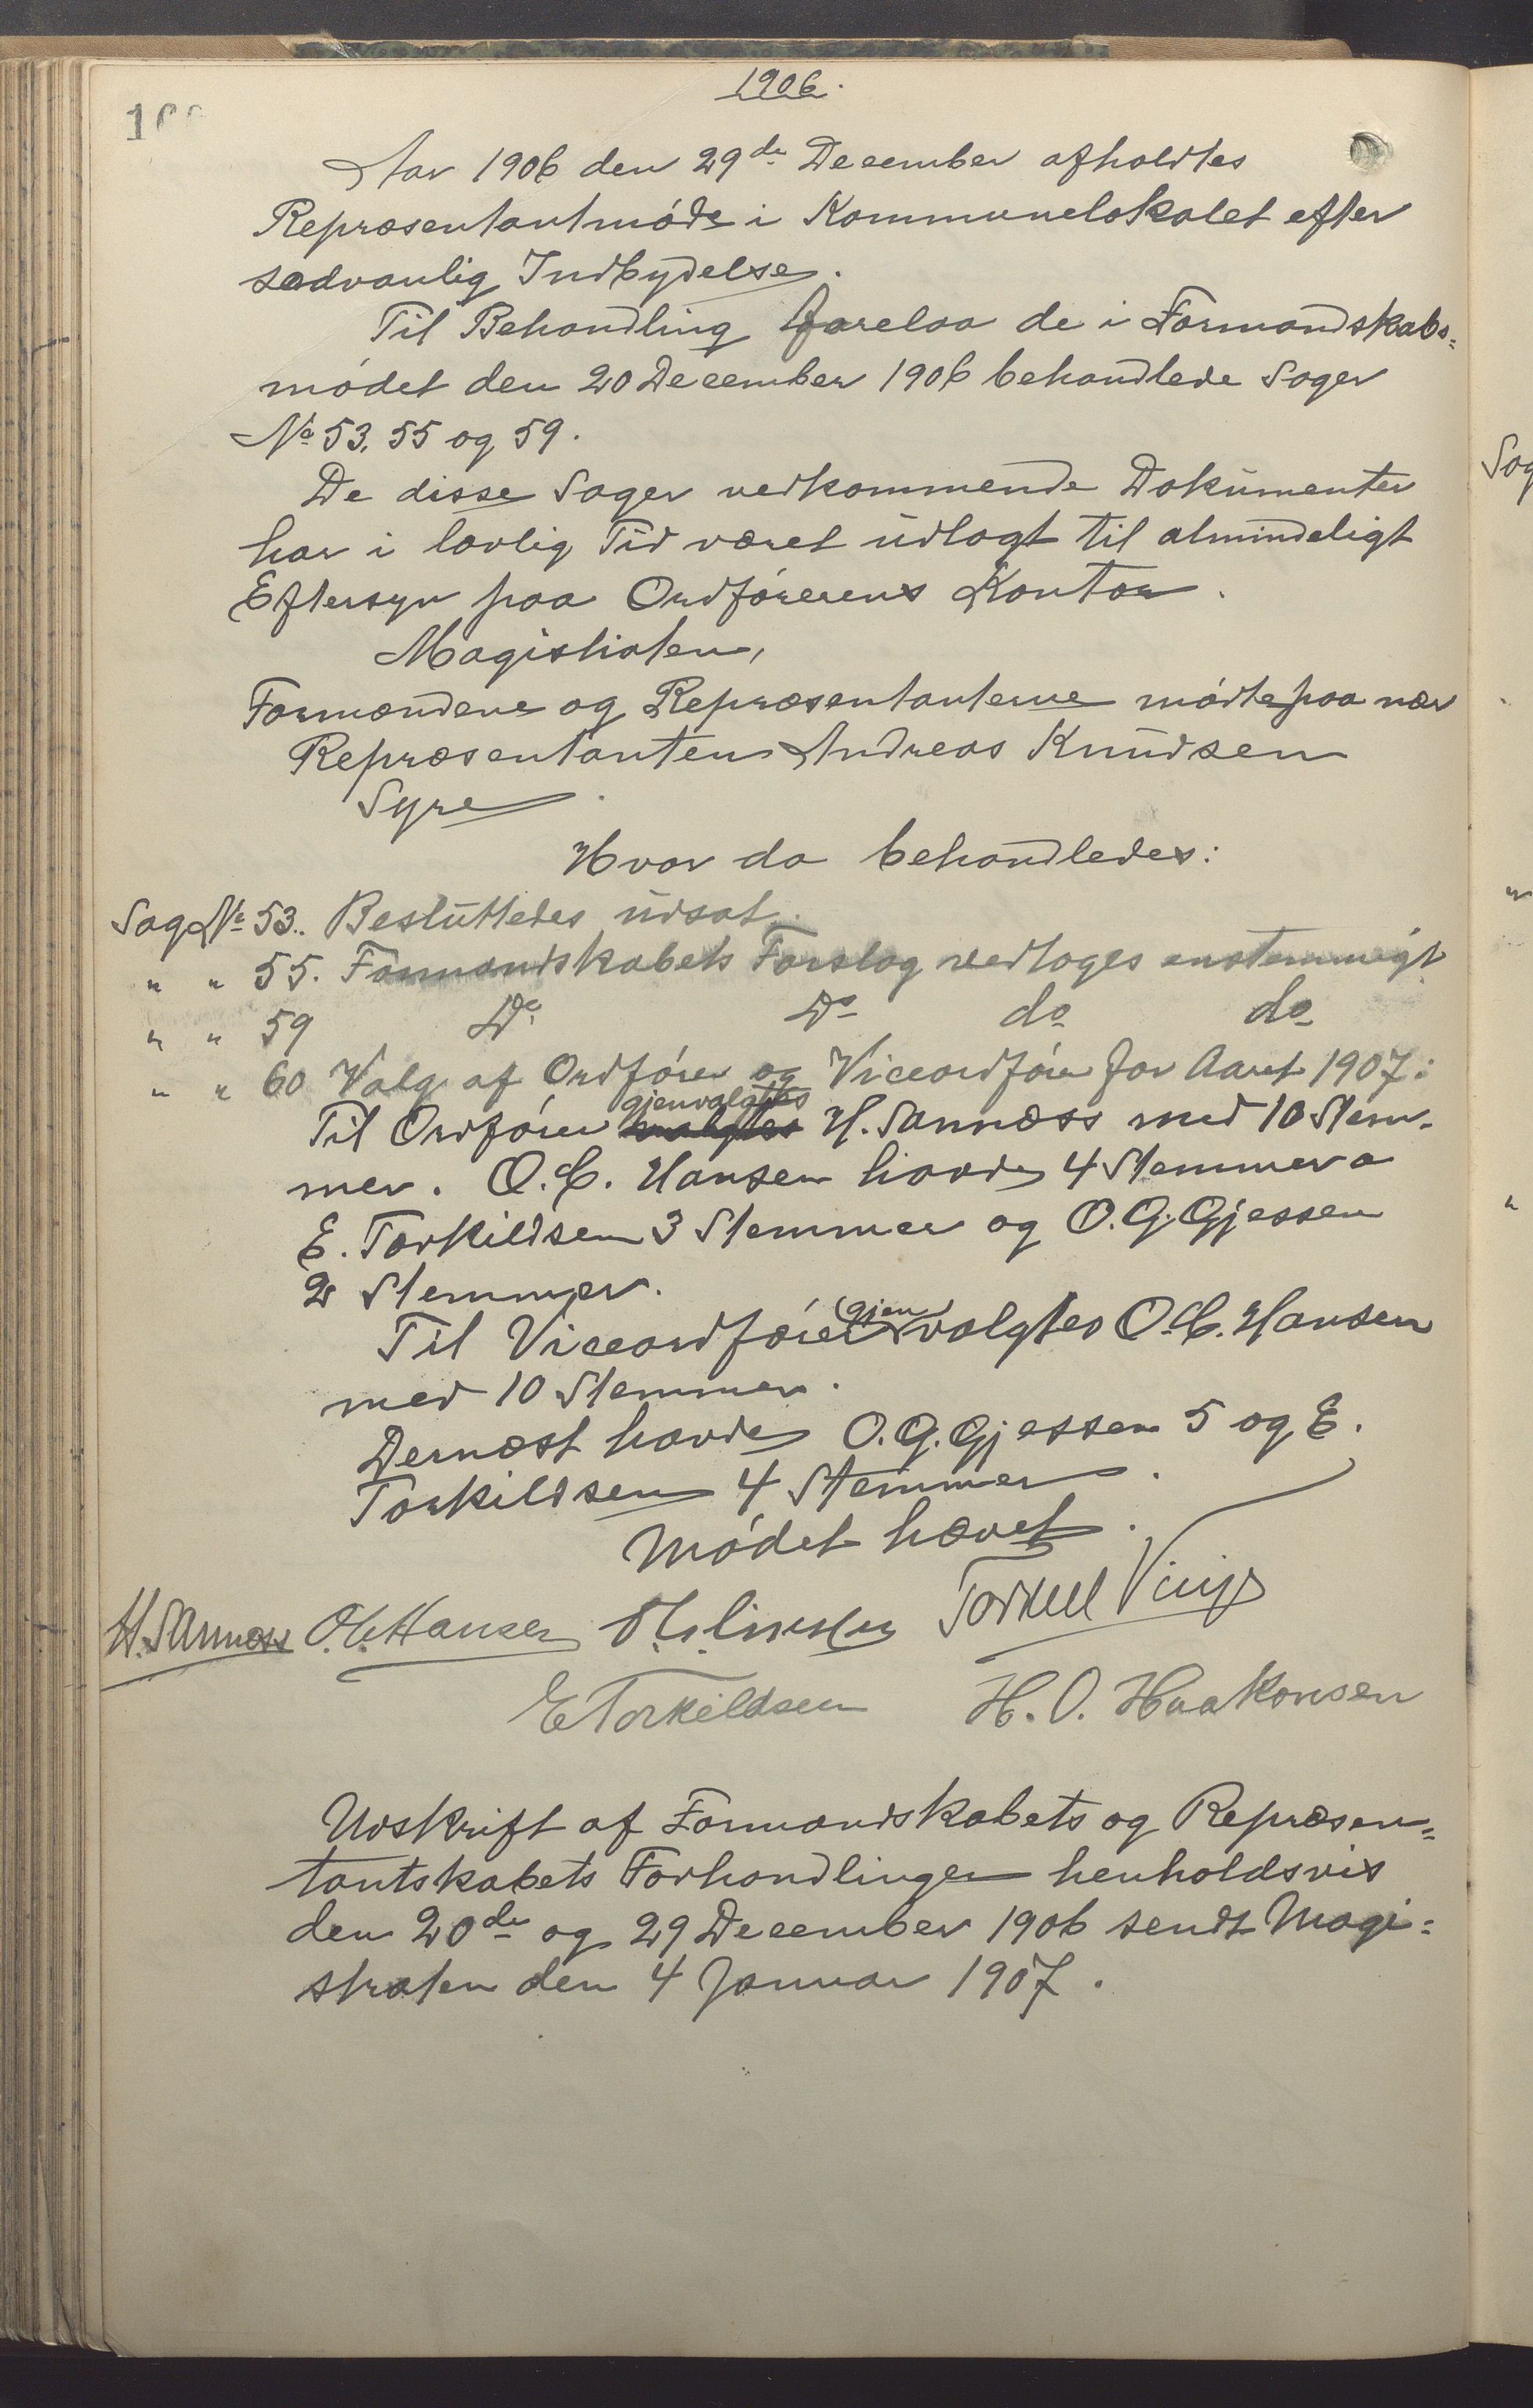 1906.
Aar 1906 den 29de December afholdtes
Repræsentantmøde i Kommunelokalet efter
sædvanlig Indbydelse.
Til Behandling forelaa de i Formandskabs=
mødet den 20 December 1906 behandlede Sager
No 53, 55 og 59.
De disse Sager vedkommende Dokumenter
har i lovlig Tid været udlagt til almindeligt
Eftersyn paa Ordførerens Kontor.
Magistraten,
Formændene og Repræsentanterne mødte paa nær
Repræsentanten Andreas Knudsen
Syre.
Hvor da behandledes:
Sag No 53.. Besluttedes udsat.
" " 55. Formandskabets Forslag vedtoges enstemmigt
" " 59 Do Do do do
" " 60 Valg af Ordfører og Viceordfører for Aaret 1907:
gjenvalgtes
Til Ordfører valgtes H. Sannæss med 10 Stem-
mer. O. C. Hansen havde 4 Stemmer a
E. Torkildsen 3 Stemmer og O. G. Gjessen
2 Stemmer.
Til Viceordfører gjenvalgtes O. C. Hansen
med 10 Stemmer.
Dernæst havde O. G. Gjessen 5 og E.
Torkildsen 4 Stemmer.
Mødet hævet.
H. Sannæss O. C. Hansen Torkell Vinje
E Torkildsen H. O. Haakonsen
Udskrift af Formandskabets og Repræsen=
tantskabets Forhandlinger henholdsvis
den 20de og 29 December 1906 sendt Magi=
straten den 4 Januar 1907.
Sag